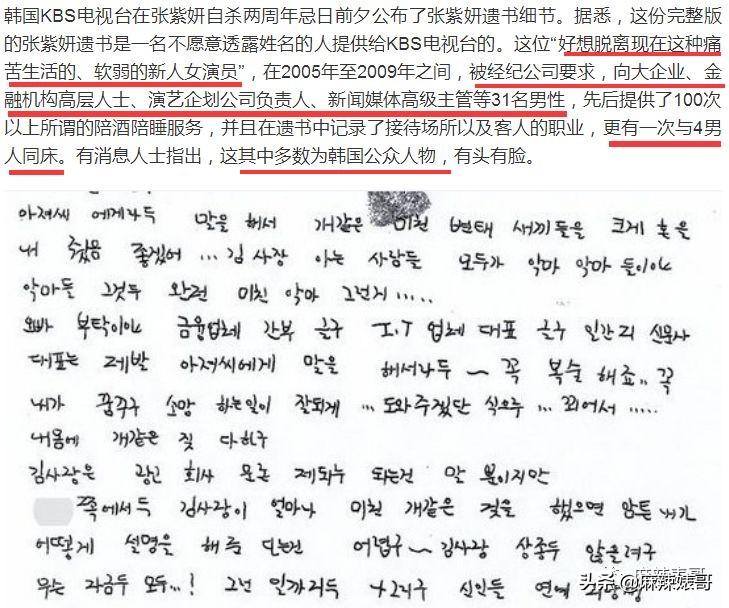 韩国KBS电视台在张紫妍自杀两周年忌日前夕公布了张紫妍遗书细节。据悉，这份完整版
的张紫妍遗书是一名不愿意透露姓名的人提供给KBS电视台的。这位“好想脱离现在这种痛
苦生活的、软弱的新人女演员”，在2005年至2009年之间，被经纪公司要求，向大企业、金
融机构高层人士、演艺企划公司负责人、新闻媒体高级主管等31名男性，先后提供了100次
以上所谓的陪酒陪睡服务，并且在遗书中记录了接待场所以及客人的职业，更有一次与4男
人同床。有消息人士指出，这其中多数为韩国公众人物，有头有脸。
아져씨 에게나두 말을 해서 개같은 미친 변태 새끼들을 크게 혼을
내 줬음 좋겠어 ... 김 사장 아는 사람들 모두가 악마 악마 들이야
악마들 그것두 완전 미친 악마 그런게 .....
오빠 부탁이야 금융업체 간부 글구 I.T 업체 대표 글구 일간지 신문사
대표는 제발 아져씨에게 말을 해서라두 ~ 꼭 복수 해죠.. 꼭
내가 꿈꾸구 소망 하는일이 잘되게 ... 도와주겠단 식으루 ... 꾀어서 .....
내몸에 개같은 짓 다하구
김사장은 광고 회사 모든 제의두 되는건 말 뿐이지만
쪽에서두 김사장이 얼마나 미친 개같은 짓을 했으면 암튼 내가
어떻게 설명을 해줄 단는건 어렵구~ 김사장 상종두 않을려구
무슨 자금두 모두...! 그런 일까지두 그리구 신인들 연예
头条@麻辣婊哥
麻辣婊哥